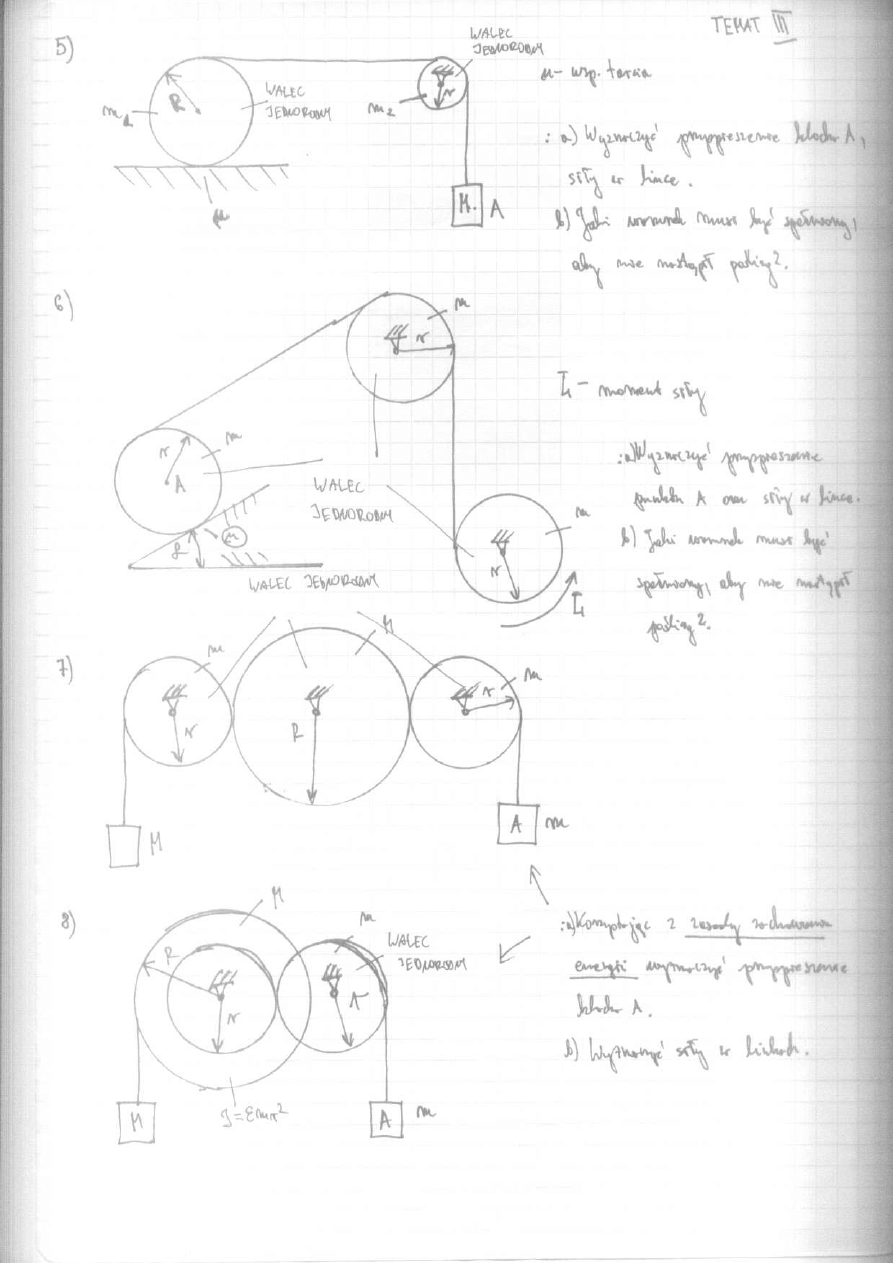 TEMAT III
5)
WALEC
JEDNORODNY
μ - wsp. tarcia
m1
R
WALEC
JEDNORODNY
m2
r
μ
M
A
: a) Wyznaczyć przyspieszenie klocka A,
siły w lince.
b) Jaki warunek musi być spełniony,
aby nie nastąpił poślizg?
6)
m
r
r
m
A
L - moment siły
: a) Wyznaczyć przyspieszenie
punktu A oraz siły w lince.
b) Jaki warunek musi być
spełniony, aby nie nastąpił
poślizg?
WALEC
JEDNORODNY
μ
m
r
L
WALEC JEDNORODNY
7)
m
M
m
r
R
r
M
A
m
8)
M
m
WALEC
JEDNORODNY
R
r
r
: a) Korzystając z zasady zachowania
energii wyznaczyć przyspieszenie
klocka A.
b) Wyznaczyć siły w linkach.
M
A
m